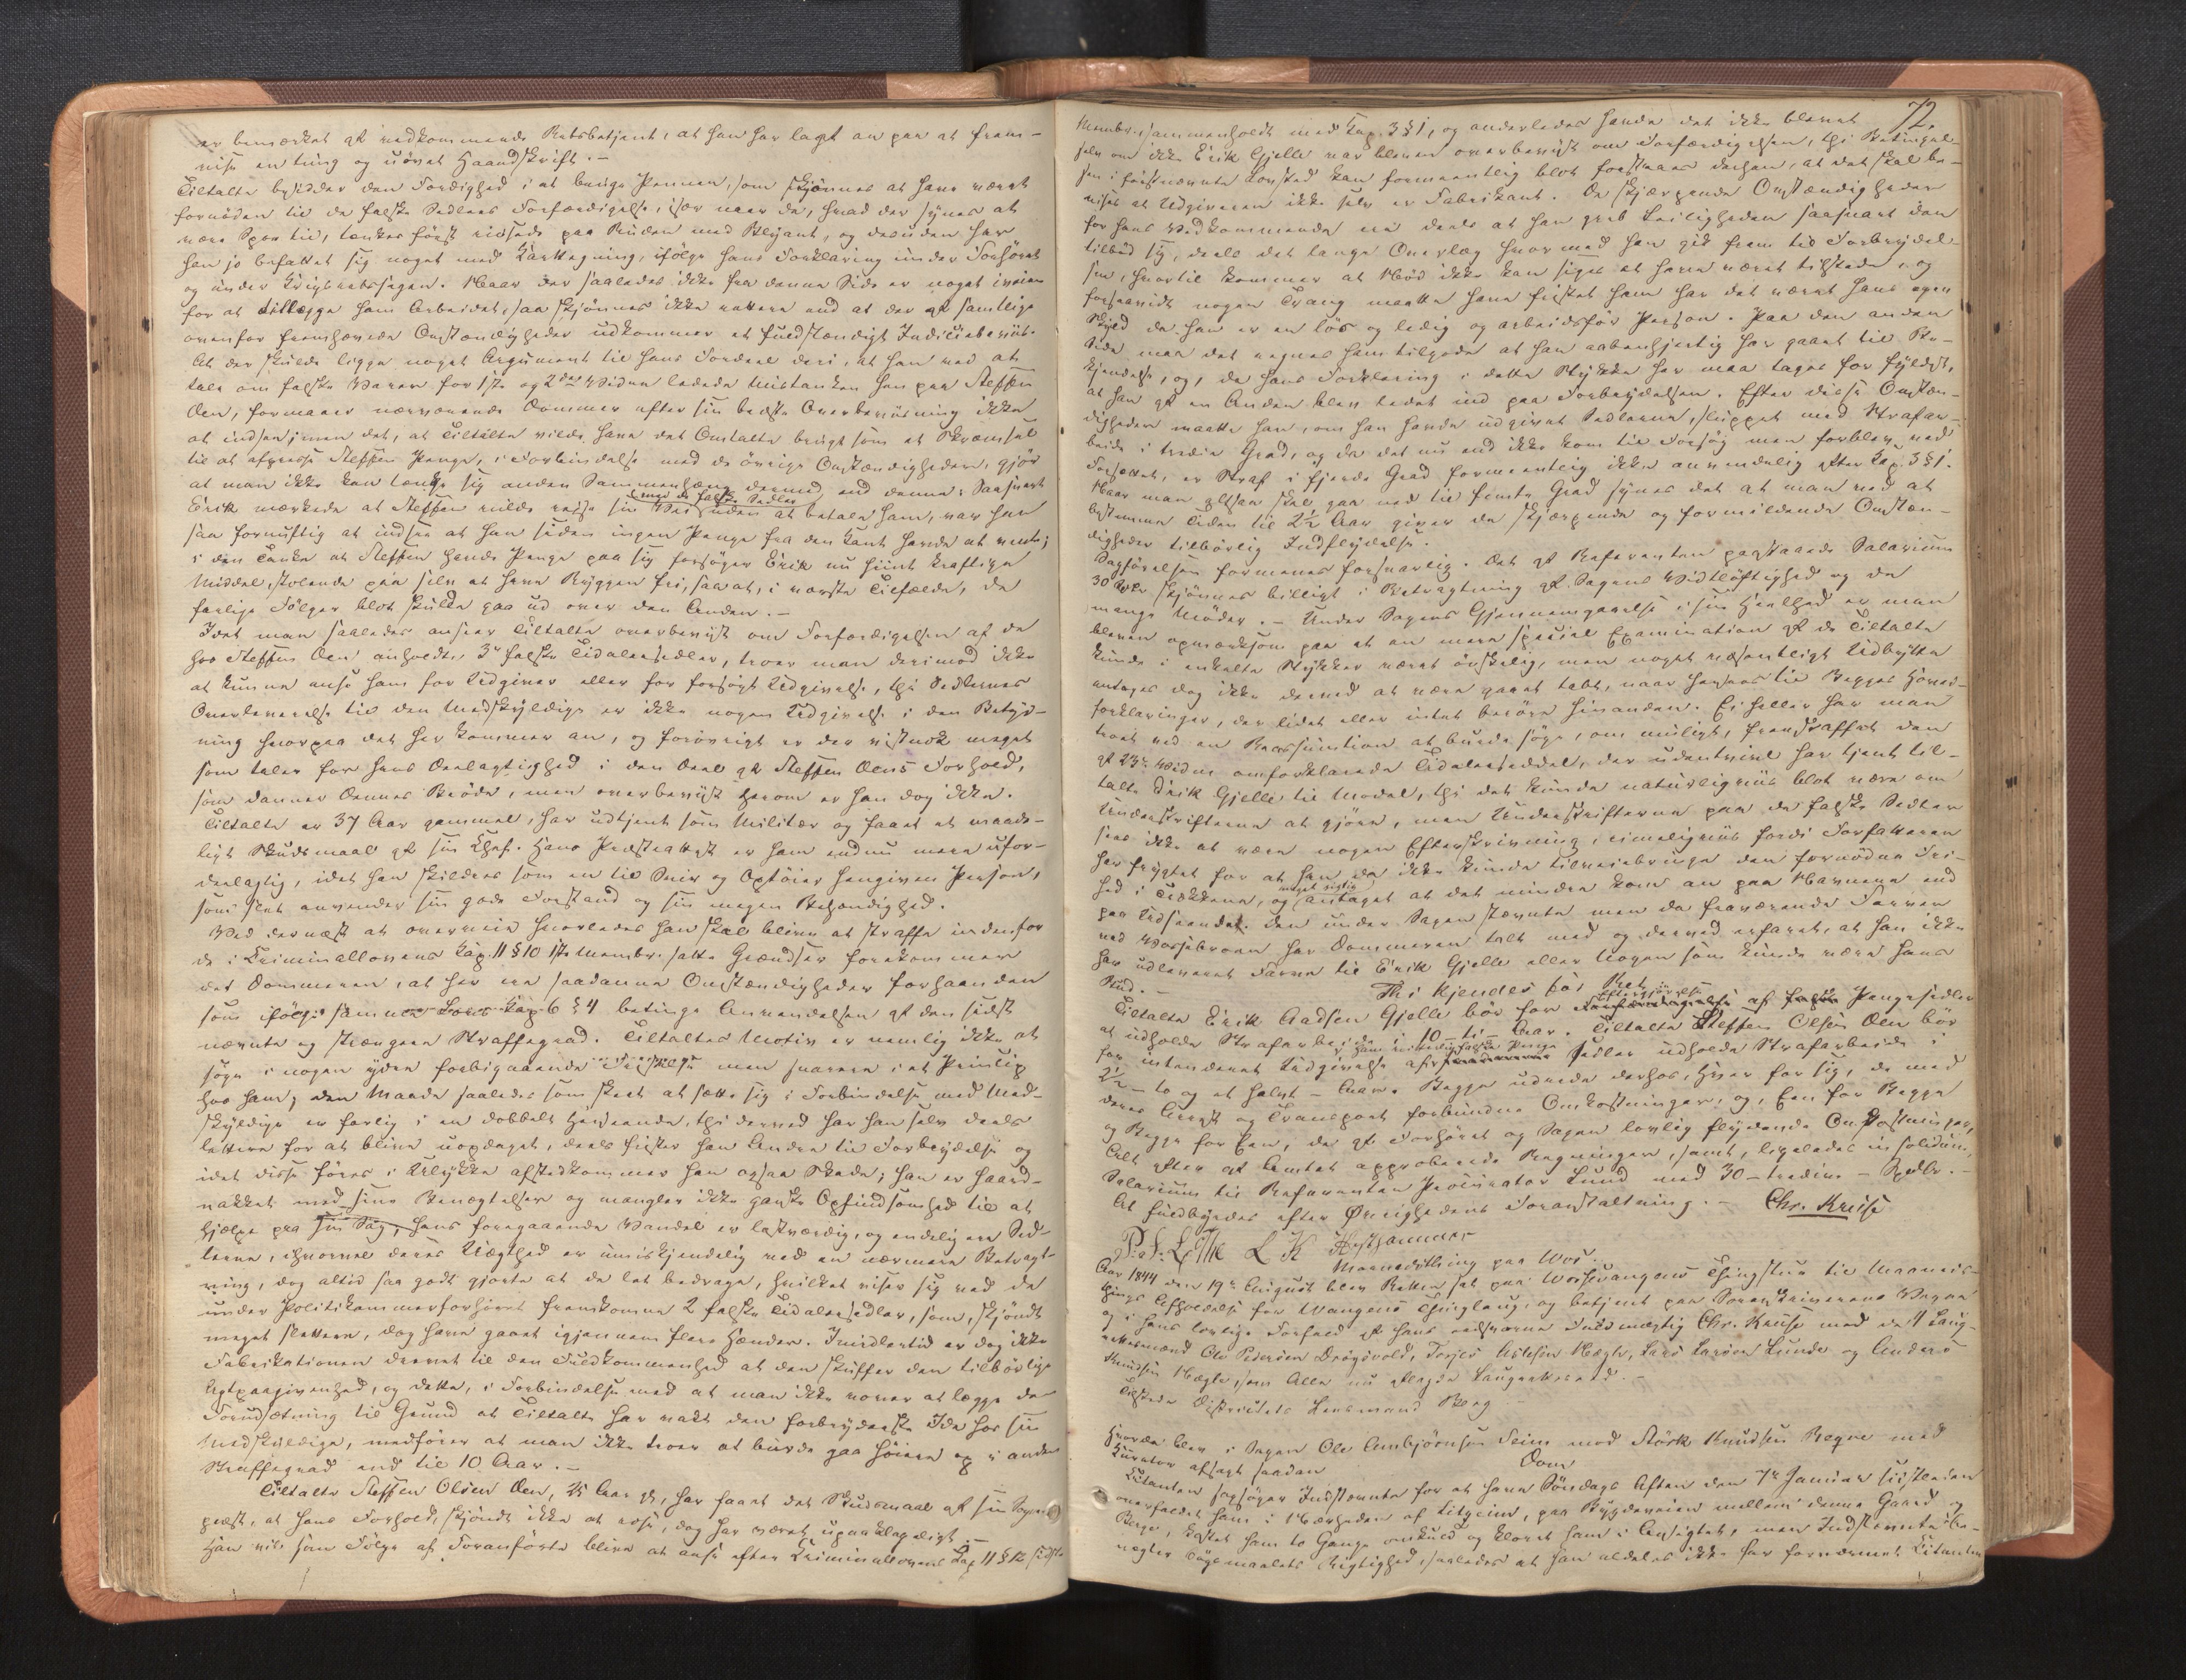 er bemærket af vedkommende Retsbetjent, at han har lagt an paa at frem-
vise en tung og uövet Haandskrift. -
Tiltalte besidder den Færdighed i at bruge Pennen, som skjönnes at have været
fornöden til de falske Sedlers Forfærdigelse, især naar de, hvad der synes at
være Spor til, tænkes först ridsede paa Ruden med Blyant, og desuden har
han jo befattet sig noget med Karttegning, ifölge hans Forklaring under Forhöret
og under Krigsretssagen. Naar der saaledes ikke fra denne Side er noget iveien
for at tillægge ham Arbeidet, saa skjönnes ikke rettere end at der af samtlige
ovenfor fremhævede Omstændigheder udkommer et fuldstændigt Indiciebeviis.
At der skulde ligge noget Argument til hans Fordeel deri, at han ved at
tale om falske Varer for 1ste og 2det Vidne ledede Mistanken hen paa Steffen
Oen, formaaer nærværende Dommer efter sin bedste Overbeviisning ikke
at indsee; men det, at Tiltalte vilde have det Omtalte brugt som et Skræmsel
til at afpresse Steffen Penge, i Forbindelse med de övrige Omstændigheder, gjör
at man ikke kan tænke sig anden Sammenhæng dermed end denne: Saasnart
med de falske Sedler
Erik mærkede at Steffen vilde reise sin Vei uden at betale ham, var han
saa fornuftig at indsee at han siden ingen Penge fra den Kant havde at vente;
i den Tanke at Steffen havde Penge paa sig forsöger Erik nu hiint kraftige
Middel, stolende paa selv at have Ryggen fri, saa at, i værste Tilfælde, de
farlige Fölger blot skulde gaa ud over den Anden. -
Idet man saaledes anseer Tiltalte overbeviist om Forfærdigelsen af de
hos Steffen Oen anholdte 3de falske Tidalersedler, troer man derimod ikke
at kunne ansee ham for Udgiver eller for forsögt Udgivelse, thi Sedlernes
Overleverelse til den Medskyldige er ikke nogen Udgivelse i den Betyd-
ning hvorpaa det her kommer an, og forövrigt er der vistnok meget
som taler for hans Deelagtighed i den Deel af Steffen Oens Forhold,
som danner Dennes Bröde, men overbeviist herom er han dog ikke.
Tiltalte er 37 Aar gammel, har udtjent som Militær og faaet et maade-
ligt Skudsmaal af sin Chef. Hans Præsteattest er ham endnu mere ufor-
deelagtig, idet han skildres som en til Sviir og Optöier hengiven Person,
som slet anvender sin gode Forstand og sin megen Behændighed.
Ved dernæst at overveie hvorledes han skal blive at straffe indenfor
de i Criminallovens Kap. 11 § 10 1ste Membr. satte Grændser forekommer
det Dommeren, at her ere saadanne Omstændigheder forhaanden
som ifölge samme Lovs Kap 6 § 4 betinge Anvendelsen af den sidst
nævnte og strængere Straffegrad. Tiltaltes Motiv er nemlig ikke at
söge i nogen ydre forbigaaende Fristelse men snarere i et Princip
hos ham; den Maade saaledes som skeet at sætte sig i Forbindelse med Med-
skyldige er farlig i en dobbelt Henseende, thi derved har han selv deels
lettere for at blive uopdaget, deels frister han Andre til Forbrydelse og
idet disse föres i Ulykke afstedkommer han ogsaa Skade; han er haard-
nakket med sine Benægtelser og mangler ikke ganske Opfindsomhed til at
hjælpe paa sin Sag; hans foregaaende Vandel er lastværdig, og endelig ere Sed-
lerne, ihvorvel deres Uægthed er umiskjendelig ved en nærmere Betragt-
ning, dog altid saa godt gjorte at de let bedrage, hvilket viser sig ved de
under Politikammerforhöret fremkomne 2 falske Tidalersedler, som, skjöndt
meget slettere, dog have gaaet igjennem flere Hænder. Imidlertid er dog ikke
Fabrikationen drevet til den Fuldkommenhed at den skuffer den tilbörlige
Agtpaagivenhed, og dette, i Forbindelse med at man ikke vover at lægge den
Forudsætning til Grund at Tiltalte har vakt den forbryderske Ide hos sin
Medskyldige, medförer at man ikke troer at burde gaa höiere op i anden
Straffegrad end til 10 Aar. -
Tiltalte Steffen Olsen Oen, 25 Aar gl., har faaet det Skudsmaal af sin Sogne
præst, at hans Forhold, skjöndt ikke at rose, dog har været upaaklageligt. -
Han vil som Fölge af Foranförte blive at ansee efter Criminallovens Kap 11 § 12 sidste
72.
Membr. sammenholdt med Kap. 3 § 1, og anderledes havde det ikke blevet
selv om ikke Erik Gjelle var bleven overbeviist om Forfærdigelsen, thi Betingel-
sen i förstnævnte Lovsted kan formeentlig blot forstaaes derhen, at det skal be-
vises at Udgiveren ikke selv er Fabrikant. De skjærpende Omstændigheder
for hans Vedkommende ere deels at han greb Leiligheden saasnart den
tilböd sig, deels det lange Overlæg hvormed han gik frem til Forbrydel-
sen, hvortil kommer at Nöd ikke kan siges at have været tilstede, og
forsaavidt nogen Trang maatte have fristet ham har det været hans egen
Skyld da han er en lös og ledig og arbeidsför Person. Paa den anden
Side maa det regnes ham tilgode at han aabenhjertig har gaaet til Be-
kjendelse, og, da hans Forklaring i dette Stykke her maa tages for fyldest,
at han af en Anden blev ledet ind paa Forbrydelsen. Efter disse Omstæn-
digheder maatte han, om han havde udgivet Sedlerne, sluppet med Strafar-
beide i tredie Grad, og da det nu end ikke kom til Forsög men forblev ved
Forsættet, er Straf i fjerde Grad formeentlig ikke anvendelig efter Kap. 3 § 1.
Naar man altsaa skal gaa ned til femte Grad synes det at man ved at
bestemme Tiden til 2½ Aar giver de skjærpende og formildende Omstæn-
digheder tilbörlig Indflydelse.
Sagförelsen formenes forsvarlig. Det af Referenten paastaaede Salarium
30 Spd. skjönnes billigt i Betragtning af Sagens Vidtlöftighed og de
mange Möder. - Under Sagens Gjennemgaaelse i sin Heelhed er man
bleven opmærksom paa at en mere special Examination af de Tiltalte
kunde i enkelte Stykker været önskelig, men noget væsentligt Udbytte
antages dog ikke derved at være gaaet tabt, naar hensees til Begges Hoved-
forklaringer, der lidet eller intet beröre hinanden. Ei heller har man
troet ved en Reassumtion at burde söge, om muligt, fremskaffet den
af 27de Vidne omforklarede Tidalerseddel, der udentvivl har tjent Til-
talte Erik Gjelle til Model, thi det kunde naturligviis blot være om
Underskrifterne at gjöre, men Underskrifterne paa de falske Sedler
sees ikke at være nogen Efterskrivning, rimeligviis fordi Forfatteren
har frygtet for at han da ikke kunde tilveiebringe den fornödne Fri-
meget rigtig
hed i Trækkene, og antaget at det mindre kom an paa Navnene end
paa Udseendet. Den under Sagen stævnte men da fraværende Farver
ved Vossebroen har Dommeren talt med og derved erfaret, at han ikke
har udleveret Farve til Erik Gjelle eller Nogen som kunde være hans
Bud. -
Thi kjendes for Ret
Eftergjörelse
Tiltalte Erik Aadsen Gjelle bör for af falske Pengesedler
at udholde Strafarbeide i 10 - ti - Aar. Tiltalte Steffen Olsen Oen bör
for intenderet Udgivelse af Sedler udholde Strafarbeide i
2½ - to og et halvt - Aar. Begge udrede derhos, hver for sig, de med
deres Arrest og Transport forbundne Omkostninger, og, Een for Begge
og Begge for Een, de af Forhöret og Sagen lovlig flydende Omkostninger,
Alt efter af Amtet approberede Regninger, samt, ligeledes in solidum,
Salarium til Referenten Procurator Lund med 30 - tredive - Spdlr. -
At fuldbyrdes efter Övrighedens Foranstaltning. - Chr. Kruse
Maanedsthing paa Vos
Aar 1844 den 19de August blev Retten sat paa Vossevangens Thingstue til Maaneds-
things Afholdelse for Vangens Thinglaug, og betjent paa Sorenskriverens Vegne
og i hans lovlige Forfald af hans edsvorne Fuldmægtig Chr. Kruse med de 4 Laug-
rettesmænd Ole Pedersen Drögsvold, Torjes Nilssen Nægle, Lars Larsen Lunde og Anders
Knudsen Nægle, som Alle nu aflagde Laugretteseed. -
Tilstede Districtets Lensmand Berg -
Hvorda blev i Sagen Ole Anbjörnsen Seim mod Störk Knudsen Reqve med
Kurator afsagt saadan
Dom
Citanten sagsöger Indstævnte for at have Söndags Aften den 7de Januar sidstleden
overfaldet ham i Nærheden af Litgeim, paa Bygdeveien mellem denne Gaard og
Berge, kastet ham to Gange omkuld og kloret ham i Ansigtet, men Indstævnte be-
nægter Sögsmaalets Rigtighed, saaledes at han aldeles ikke har fornærmet Citanten